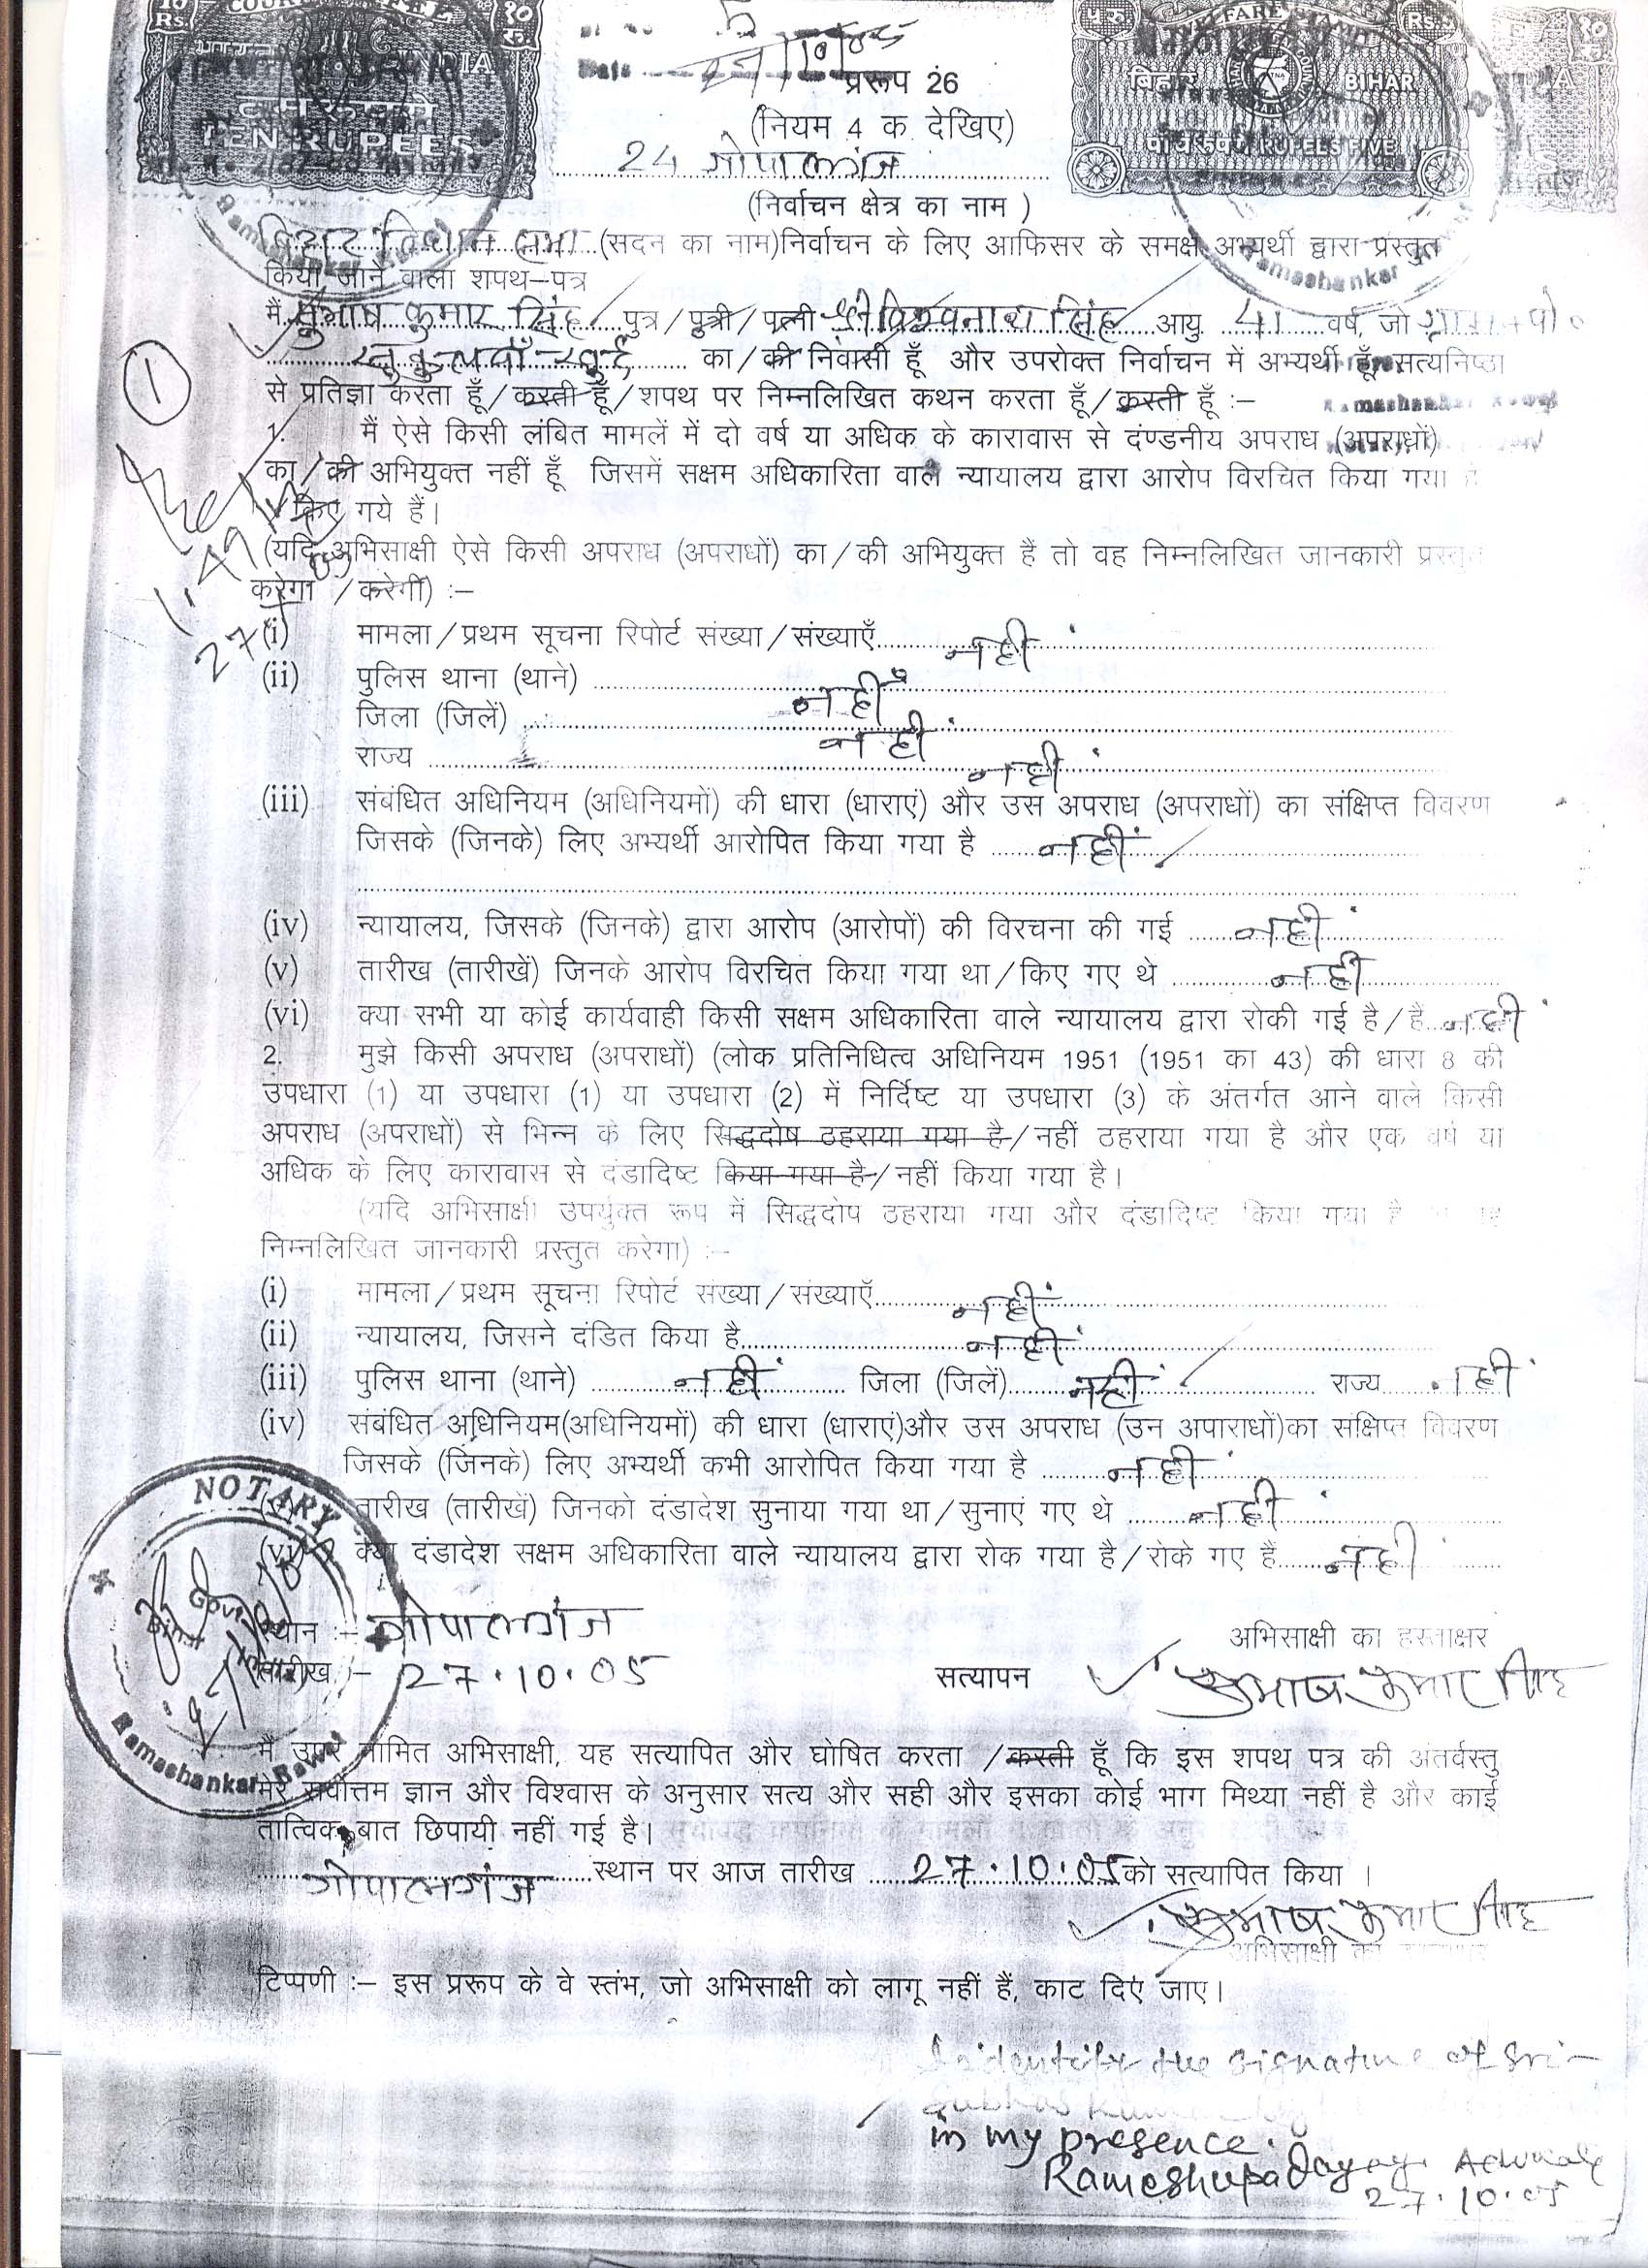 COURT FEE
INDIA
TEN RUPEES
WELFARE STAMP
बिहार BIHAR
पाँच रूपये RUPEES FIVE
प्ररूप 26
(नियम 4 क देखिए)
24 गोपालगंज
(निर्वाचन क्षेत्र का नाम )
बिहार विधान सभा (सदन का नाम)निर्वाचन के लिए आफिसर के समक्ष अभ्यर्थी द्वारा प्रस्तुत
किया जाने वाला शपथ–पत्र
मैं सुभाष कुमार सिंह पुत्र/पुत्री/पत्नी श्री विश्वनाथ सिंह आयु 41 वर्ष, जो ग्राम+पो०
का/की निवासी हूँ और उपरोक्त निर्वाचन में अभ्यर्थी हूँ, सत्यनिष्ठा
से प्रतिज्ञा करता हूँ/करती हूँ/शपथ पर निम्नलिखित कथन करता हूँ/करती हूँ :–
1. मैं ऐसे किसी लंबित मामलें में दो वर्ष या अधिक के कारावास से दंण्डनीय अपराध (अपराधों)
का/की अभियुक्त नहीं हूँ जिसमें सक्षम अधिकारिता वाले न्यायालय द्वारा आरोप विरचित किया गया है
किए गये हैं।
(यदि अभिसाक्षी ऐसे किसी अपराध (अपराधों) का/की अभियुक्त हैं तो वह निम्नलिखित जानकारी प्रस्तुत
करेगा /करेगी) :–
(i) मामला/प्रथम सूचना रिपोर्ट संख्या/संख्याएँ नहीं
(ii) पुलिस थाना (थाने) नहीं
जिला (जिलें) नहीं
राज्य नहीं
(iii) संबंधित अधिनियम (अधिनियमों) की धारा (धाराएं) और उस अपराध (अपराधों) का संक्षिप्त विवरण
जिसके (जिनके) लिए अभ्यर्थी आरोपित किया गया है नहीं
(iv) न्यायालय, जिसके (जिनके) द्वारा आरोप (आरोपों) की विरचना की गई नहीं
(v) तारीख (तारीखें) जिनके आरोप विरचित किया गया था/किए गए थे नही
(vi) क्या सभी या कोई कार्यवाही किसी सक्षम अधिकारिता वाले न्यायालय द्वारा रोकी गई है/हैं नहीं
2. मुझे किसी अपराध (अपराधों) (लोक प्रतिनिधित्व अधिनियम 1951 (1951 का 43) की धारा 8 की
उपधारा (1) या उपधारा (1) या उपधारा (2) में निर्दिष्ट या उपधारा (3) के अंतर्गत आने वाले किसी
अपराध (अपराधों) से भिन्न के लिए सिद्धदोष ठहराया गया है/नहीं ठहराया गया है और एक वर्ष या
अधिक के लिए कारावास से दंडादिष्ट किया गया है/नहीं किया गया है।
(यदि अभिसाक्षी उपर्युक्त रूप में सिद्धदोष ठहराया गया और दंडादिष्ट किया गया है
निम्नलिखित जानकारी प्रस्तुत करेगा) :–
(i) मामला/प्रथम सूचना रिपोर्ट संख्या/संख्याएँ नहीं
(ii) न्यायालय, जिसने दंडित किया है नहीं
(iii) पुलिस थाना (थाने) नहीं जिला (जिलें) नहीं राज्य नहीं
(iv) संबंधित अधिनियम(अधिनियमों) की धारा (धाराएं)और उस अपराध (उन अपाराधों)का संक्षिप्त विवरण
जिसके (जिनके) लिए अभ्यर्थी कभी आरोपित किया गया है नहीं
तारीख (तारीखें) जिनको दंडादेश सुनाया गया था/सुनाएं गए थे नहीं
(vi) क्या दंडादेश सक्षम अधिकारिता वाले न्यायालय द्वारा रोक गया है/रोके गए हैं नहीं
NOTARY
Ramashankar Rawat
स्थान :– गोपालगंज
अभिसाक्षी का हस्ताक्षर
तारीख :– 27.10.05
सत्यापन
सुभाष कुमार सिंह
मैं उपर नामित अभिसाक्षी, यह सत्यापित और घोषित करता /करती हूँ कि इस शपथ पत्र की अंतर्वस्तु
मेरे सर्वोत्तम ज्ञान और विश्वास के अनुसार सत्य और सही और इसका कोई भाग मिथ्या नहीं है और काई
तात्विक बात छिपायी नहीं गई है।
गोपालगंज स्थान पर आज तारीख 27.10.05 को सत्यापित किया ।
सुभाष कुमार सिंह
अभिसाक्षी का हस्ताक्षर
टिप्पणी :– इस प्ररूप के वे स्तंभ, जो अभिसाक्षी को लागू नहीं हैं, काट दिए जाए।
I identify the signature of Sri–
Subhas Kumar
in my presence.
Rameshupadayay. Advocate
27.10.05